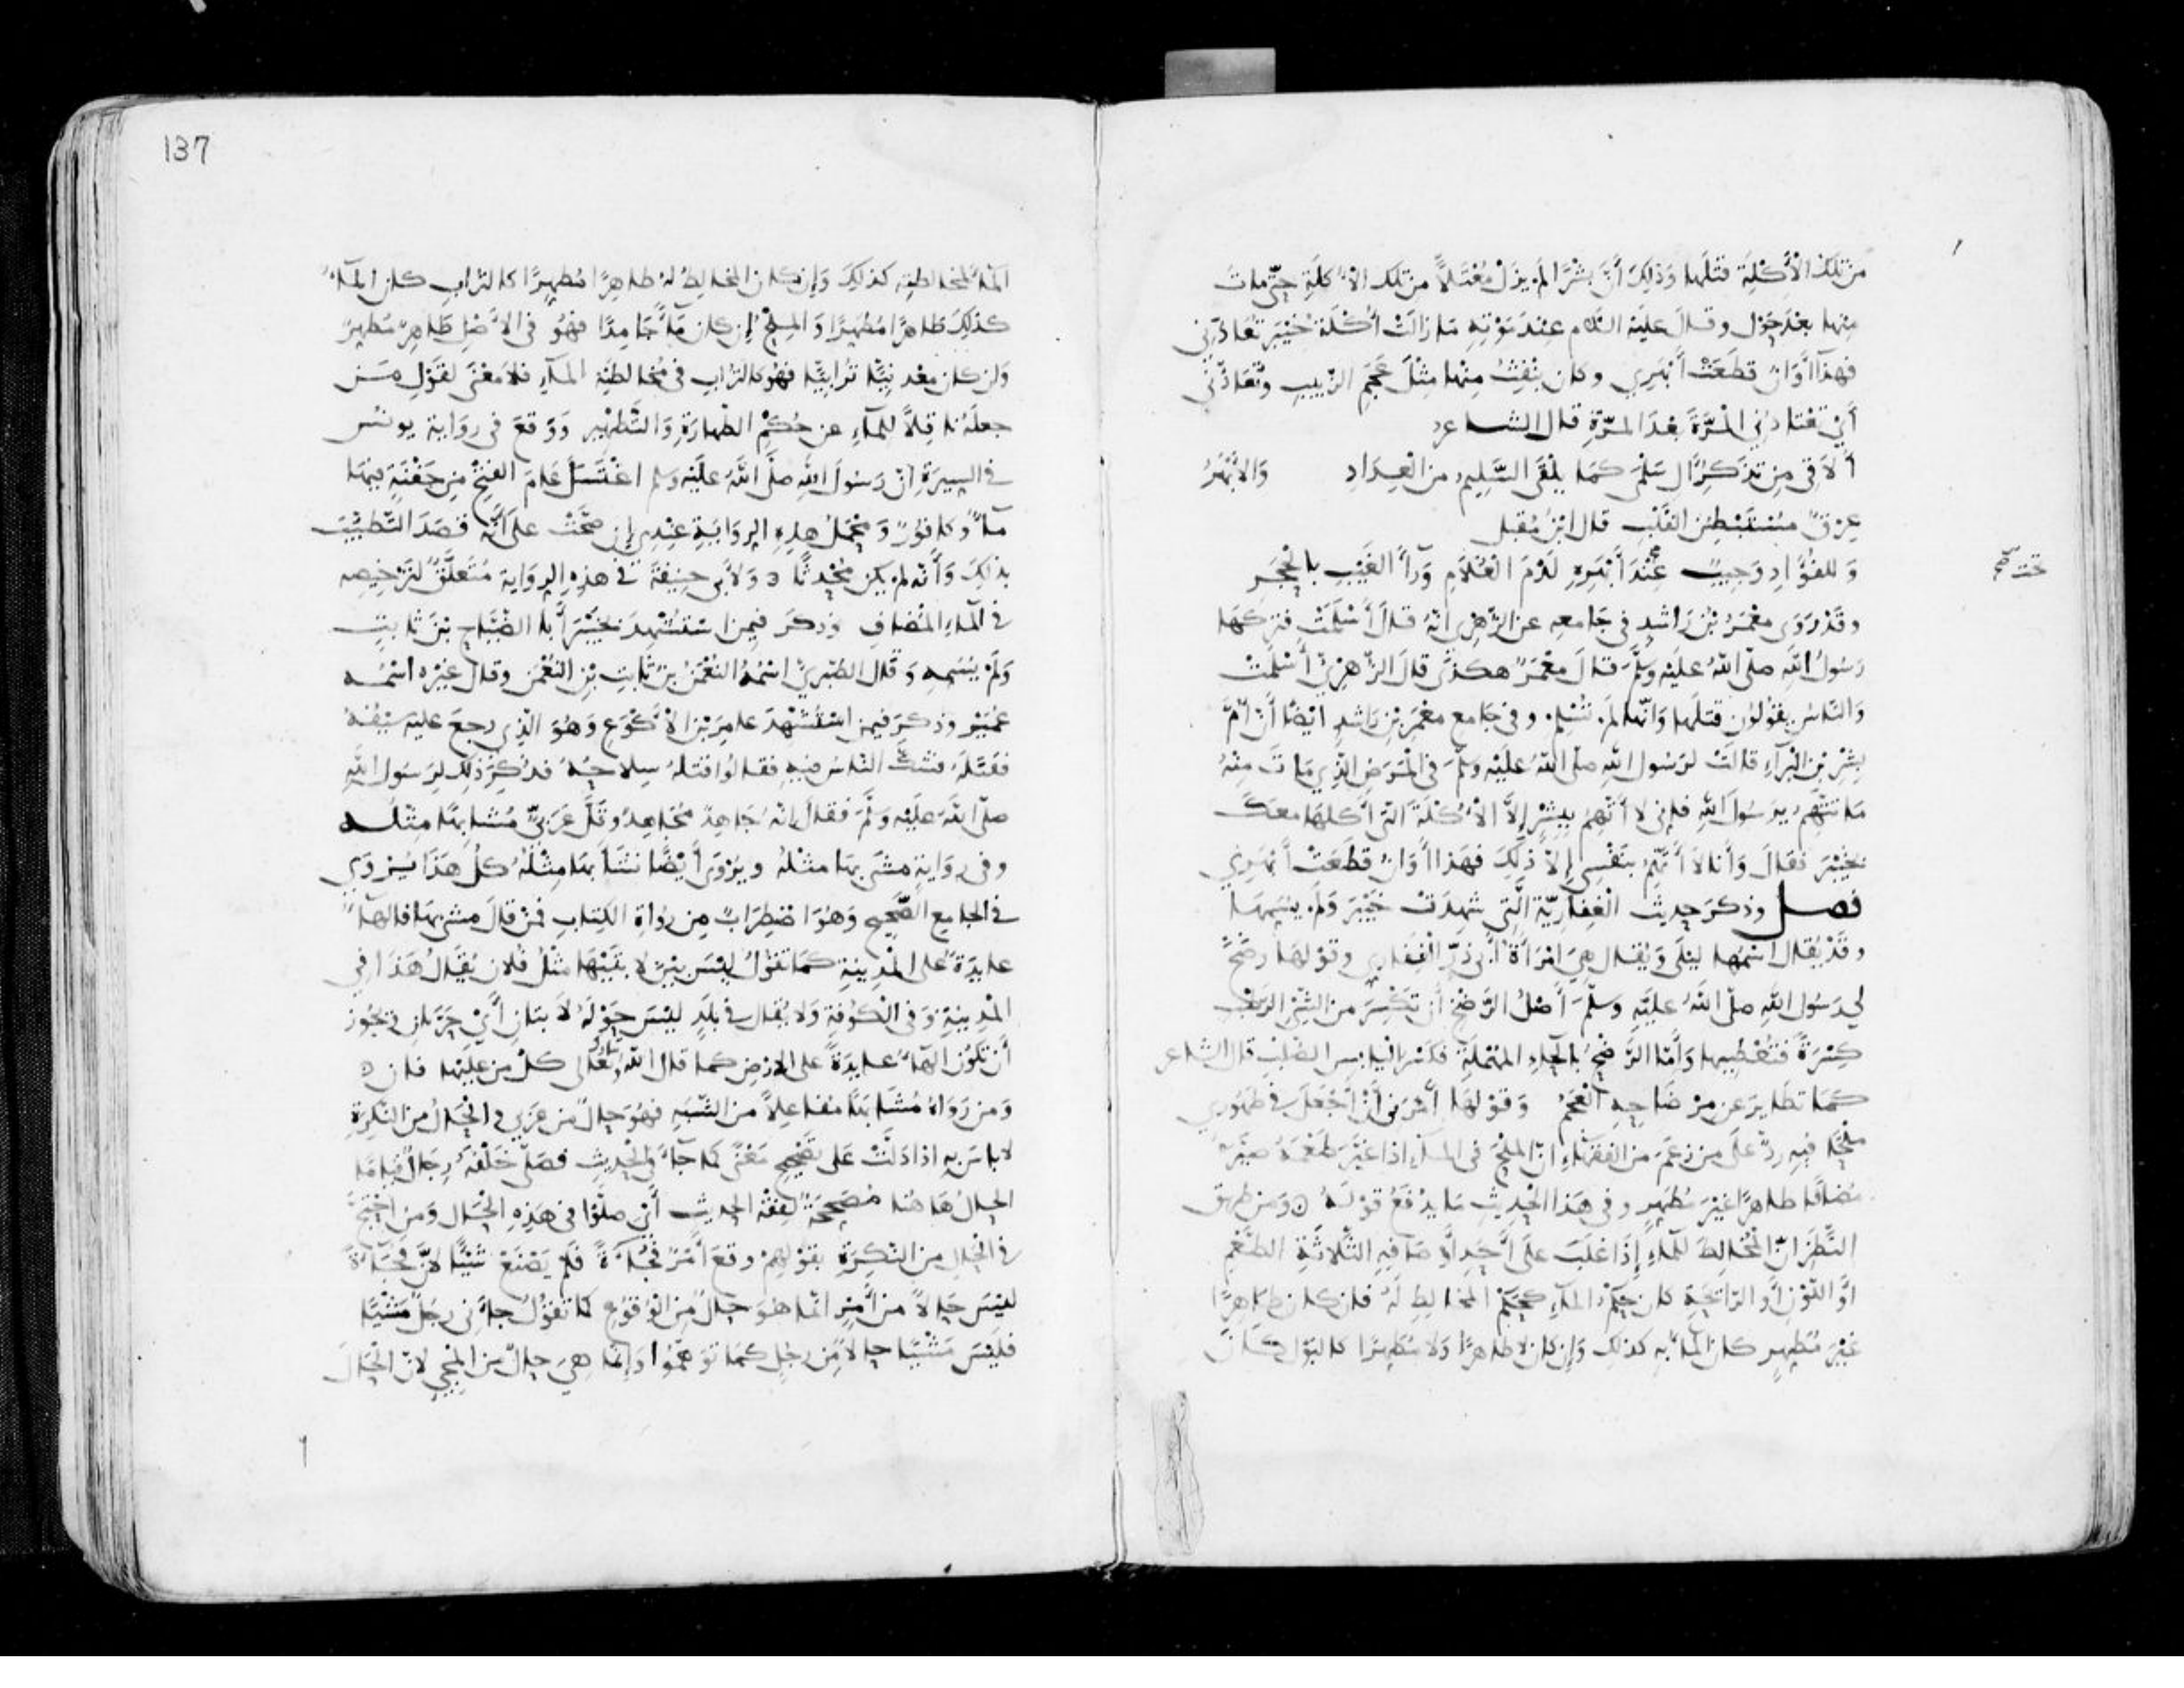 من تلك الأكلة قتلها وذلك أن بشرا لم يزل معتلا من تلك الأكلة حتى مات
منها بعد حول وقال عليه السلام عند موته ما زالت أكلة خيبر تعادني
فهذا أوان قطعت أبهري وكان ينفث منها مثل عجم الزبيب وتعادني
أي تعتادني المرة بعد المرة قال الشاعر
ألاقي من تذكر ال سلمى كما يلقى السليم من العداد والأبهر
عرق مستبطن القلب قال ابن مقبل
وللفؤاد وجيب عند أبهره لدم الغلام وراء الغيب بالحجر
تحت صح
وقد روى معمر بن راشد في جامعه عن الزهري انه قال أسلمت فتركها
رسول الله صلى الله عليه وسلم قال معمر هكذى قال الزهري أسلمت
والناس يقولون قتلها وانها لم تسلم وفي جامع معمر بن راشد ايضا أن أم
بشر بن البراء قالت لرسول الله صلى الله عليه وسلم في المرض الذي مات منه
ما تتهم يرسول الله فإني لا أتهم ببشر إلا الأكلة التي أكلها معك
بخيبر فقال وأنا لا أتهم بنفسي إلا ذلك فهذا أوان قطعت أبهري
فصل وذكر حديث الغفارية التي شهدت خيبر ولم يسمها
وقد يقال اسمها ليلى ويقال هي امرأة أبي ذر الغفاري وقولها رضخ
لي رسول الله صلى الله عليه وسلم أصل الرضخ أن تكسر من الشيء الرطب
كسرة فتعطيها وأما الرضح بالحاء المهملة فكسر اليابس الصلب قال الشاعر
كما تطاير عن مرضاحه العجم وقولها أمرني أن أجعل في طهوري
ملحا فيه رد على من زعم من الفقهاء ان الملح في الماء اذا غير طعمه صيره
مضافا طاهرا غير مطهر وفي هذا الحديث ما يدفع قوله ٥ ومن طريق
النظر ان المخالط للماء إذا غلب على أحد أوصافه الثلاثة الطعم
أو اللون أو الرائحة كان حكم الماء كحكم المخالط له فان كان طاهرا
غير مطهر كان الماء به كذلك وإن كان لا طاهرا ولا مطهرا كالبول كان
137
الماء لمخالطته كذلك وإن كان المخالط له طاهرا مطهرا كالتراب كان الماء
كذلك طاهرا مطهرا والملح إن كان ماء جامدا فهو في الأصل طاهر مطهر
وإن كان معدنيا ترابيا فهو كالتراب في مخالطة الماء فلا معنى لقول من
جعله ناقلا للماء عن حكم الطهارة والتطهير ووقع في رواية يونس
في السيرة أن رسول الله صلى الله عليه وسلم اغتسل عام الفتح من جفنة فيها
ماء وكافور ومحمل هذه الرواية عندي إن صحت على أنه قصد التطييب
بذلك وأنه لم يكن محدثا ٥ ولأبي حنيفة في هذه الرواية متعلق لترخيصه
في الماء المضاف وذكر فيمن استشهد بخيبر أبا الضياح بن ثابت
ولم يسمه وقال الطبري اسمه النعمن بن ثابت بن النعمن وقال غيره اسمه
عمير وذكر فيمن استشهد عامر بن الأكوع وهو الذي رجع عليه سيفه
فقتله فشك الناس فيه فقالوا قتله سلاحه فذكر ذلك لرسول الله
صلى الله عليه وسلم فقال إنه جاهد مجاهد وقل عربي مشابها مثله
وفي رواية مشى بها مثله ويروى أيضا نشأ بها مثله كل هذا يروي
في الجامع الصحيح وهو اضطراب من رواة الكتاب فمن قال مشى بها فالهاء
عايدة على المدينة كما تقول ليس بين لابتيها مثل فلان يقال هذا في
المدينة وفي الكوفة ولا يقال في بلد ليس حوله لابتان أي حرتان ويجوز
أن تكون الهاء عايدة على الارض كما قال الله تبارك وتعالى كل من عليها فان ٥
ومن رواه مشابها مفاعلا من الشبه فهو حال من عربي والحال من النكرة
لا باس به اذا دلت على تصحيح معنى كما جاء في الحديث فصلى خلفه رجال قياما
الحال هاهنا مصححة لفقه الحديث أي صلوا في هذه الحال ومن احتج
في الحال من النكرة بقولهم وقع أمر فجاءة فلم يصنع شيئا لان فجاءة
ليس حالا من أمر انما هو حال من الوقوع كما تقول جاءني رجل مشيا
فليس مشيا حالا من رجل كما توهموا وإنما هي حال من المجيء لان الحال